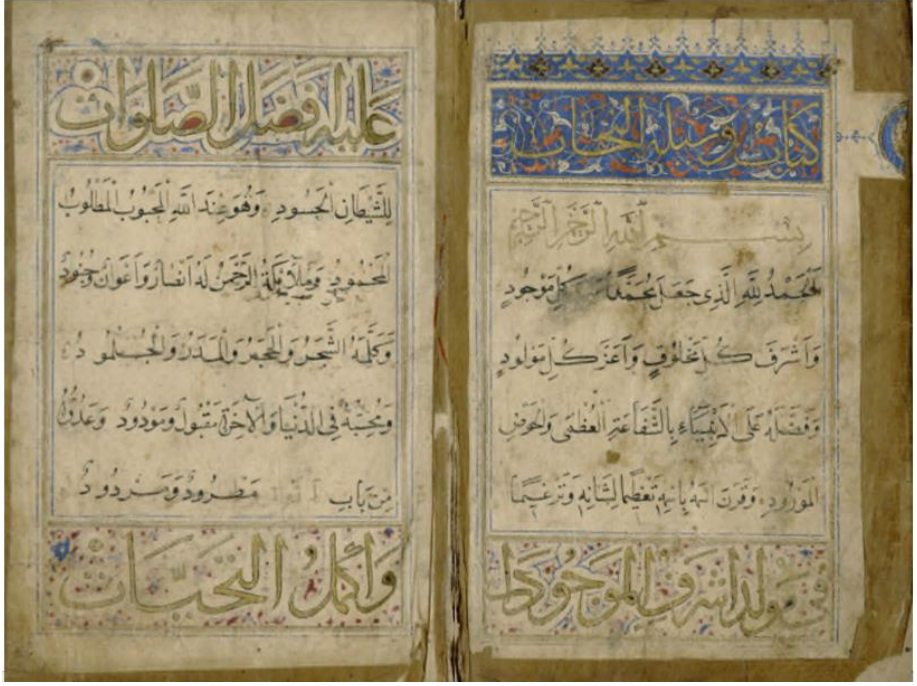 كتاب وسيلة النجات
بسم الله الرحمن الرحيم
اَلْحَمْدُ لِلّٰهِ الَّذِى جَعَلَ مُحَمَّدًا كُلِّ مَوْجُودٍ
وَاَشْرَفَ كُلِّ مَخْلُوقٍ وَاَعَزَّ كُلِّ مَوْلُودٍ
وَفَضَّلَهُ عَلَى الْاَنْبِيَاءِ بِالشَّفَاعَةِ الْعُظْمٰى وَالْحَوْضِ
الْمَوْرُودِ وَقَرَنَ اسْمَهُ بِاسْمِهِ تَعْظِيمًا لِشَانِهِ وَتَرْغِيمًا
فى مولد اشرف الموجودات
عليه افضل الصلوات
لِلشَّيْطَانِ الْحَسُودِ وَهُوَ عِنْدَ اللّٰهِ الْمَحْبُوبُ الْمَطْلُوبُ
الْمَحْمُودُ وَمَلَائِكَةُ الرَّحْمٰنِ لَهُ اَنْصَارٌ وَاَعْوَانٌ وَجُنُودٌ
وَكَلَّمَهُ الشَّجَرُ وَالْحَجَرُ وَالْمَدَرُ وَالْجُلْمُودُ
وَمُحِبُّهُ فِى الدُّنْيَا وَالْاٰخِرَةِ مَقْبُولٌ وَمَوْدُودٌ وَعَدُوُّهُ
مِنْ بَابِ مَطْرُودٌ وَمَرْدُودٌ
واكمل التحيات